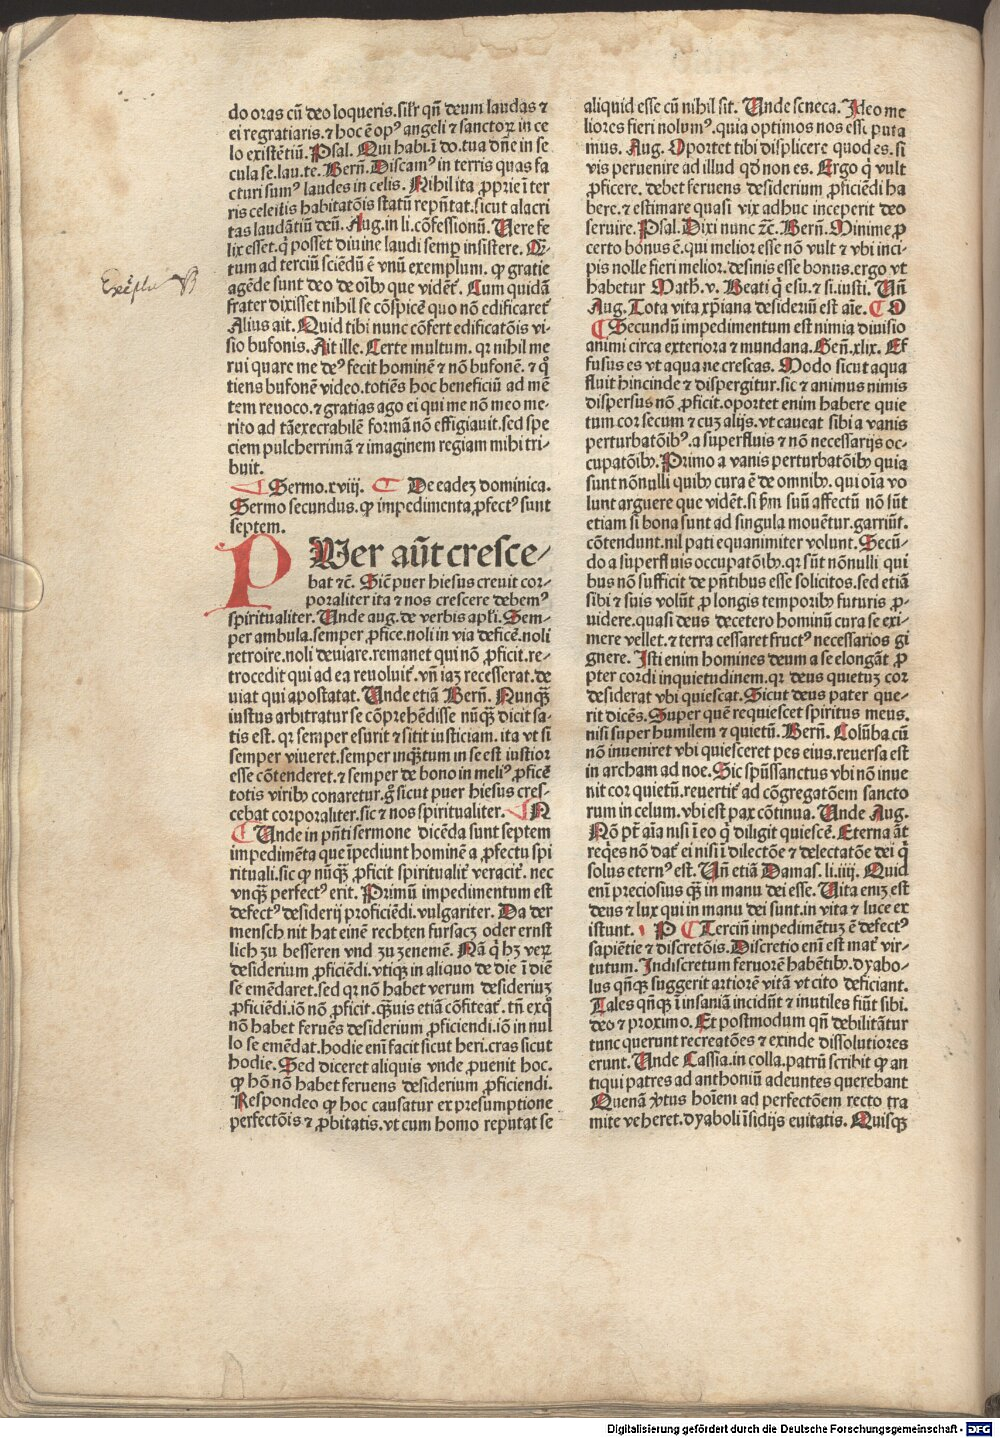 do oras cū deo loqueris. silr qn̄ deum laudas ⁊
ei regratiaris. ⁊ hoc ē opꝰ angeli ⁊ sanctoꝝ in ce
lo existētiū. Psal. Qui habi. ī do. tua dn̄e in se
cula se. lau. te. Bern̄. Discamꝰ in terris quas fa
cturi sumꝰ laudes in celis. Nihil ita ꝓprie ī ter
ris celestis habitatōis statū repn̄tat. sicut alacri
tas laudātiū deū. Aug. in li. cōfessionū. Uere fe
lix esset. q̇ posset diuine laudi semꝑ insistere. Q̄
tum ad terciū sciēdū ē vnū exemplum. ꝙ gratie
agēde sunt deo de oīb9 que vident̄. Cum quidā
frater dixisset nihil se cōspicē quo nō edificaret̄
Alius ait. Quid tibi nunc cōfert edificatōis vi-
sio bufonis. Ait ille. Certe multum. qr nihil me
rui quare me deꝰ fecit hominē ⁊ nō bufonē. ⁊ qͦ
tiens bufonē video. totiēs hoc beneficiū ad mē
tem reuoco. ⁊ gratias ago ei qui me nō meo me-
rito ad tā execrabilē formā nō effigiauit. sed spe
ciem pulcherrimā ⁊ imaginem regiam mihi tri-
buit.
Sermo. xviij. De eadeꝫ dominica.
Sermo secundus. ꝙ impedimenta ꝓfectꝰ sunt
septem.
PUer aūt cresce-
bat ⁊c̄. Sicē puer hiesus creuit cor-
poraliter ita ⁊ nos crescere debemꝰ
spiritualiter. Unde aug. de verbis apl̄i. Sem-
per ambula. semper ꝓfice. noli in via deficē. noli
retroire. noli deuiare. remanet qui nō ꝓficit. re-
trocedit qui ad ea reuoluit̄. vn̄ iaꝫ recesserat. de
uiat qui apostatat. Unde etiā Bern̄. Nunqꝫ̄
iustus arbitratur se cōprehēdisse nūqꝫ̄ dicit sa-
tis est. qr semper esurit ⁊ sitit iusticiam. ita vt si
semper viueret. semper inqꝫ̄tum in se est iustior
esse cōtenderet. ⁊ semper de bono in meliꝰ ꝓficē
totis virib9 conaretur. ḡ sicut puer hiesus cres-
cebat corporaliter. sic ⁊ nos spiritualiter. N
Unde in pn̄ti sermone dicēda sunt septem
impedimēta que īpediunt hominē a ꝓfectu spi
rituali. sic ꝙ nūqꝫ̄ ꝓficit spiritualit̄ veracit̄. nec
vnqꝫ̄ perfectꝰ erit. Primū impedimentum est
defectꝰ desiderij proficiēdi. vulgariter. Da der
mensch nit hat einē rechten fursacꝫ oder ernst
lich zu besseren vnd zu zenemē. Nā q̇ hꝫ veꝝ
desiderium ꝓficiēdi. vtiqꝫ in aliquo de die ī diē
se emēdaret. sed qr nō habet verum desideriuꝫ
ꝓficiēdi. iō nō ꝓficit. qꝫ̄uis etiā cōfiteat̄. tn̄ ex qͦ
nō habet feruēs desiderium ꝓficiendi. iō in nul
lo se emēdat. hodie enī facit sicut heri. cras sicut
hodie. Sed diceret aliquis vnde ꝓuenit hoc.
ꝙ hō nō habet feruens desiderium ꝓficiendi.
Respondeo ꝙ hoc causatur ex presumptione
perfectōis ⁊ ꝓbitatis. vt cum homo reputat se
aliquid esse cū nihil sit. Unde seneca. Ideo me
liores fieri nolumꝰ. quia optimos nos esse puta
mus. Aug. Oportet tibi displicere quod es. si
vis peruenire ad illud qd̓ non es. Ergo q̇ vult
ꝓficere. debet feruens desiderium ꝓficiēdi ha
bere. ⁊ estimare quasi vix adhuc inceperit deo
seruire. Psal. Dixi nunc ⁊c̄. Bern̄. Minime ꝓ
certo bonus ē. qui melior esse nō vult ⁊ vbi inci-
pis nolle fieri melior. desinis esse bonus. ergo vt
habetur Math. v. Beati q̇ esu. ⁊ si. iusti. Un̄
Aug. Tota vita xp̄iana desideriū est aīe. O
Secundū impedimentum est nimia diuisio
animi circa exteriora ⁊ mundana. Gen̄. xlix. Ef
fusus es vt aqua ne crescas. Modo sicut aqua
fluit hincinde ⁊ dispergitur. sic ⁊ animus nimis
dispersus nō ꝓficit. oportet enim habere quie
tum cor secum ⁊ cuꝫ alijs. vt caueat sibi a vanis
perturbatōibꝰ. a superfluis ⁊ nō necessarijs oc-
cupatōib9. Primo a vanis perturbatōib9 quia
sunt nōnulli quib9 cura ē de omnib9. qui oīa vo
lunt arguere que vidēt. si ẜm suū affectū nō sūt
etiam si bona sunt ad singula mouētur. garriūt.
cōtendunt. nil pati equanimiter volunt. Secū-
do a superfluis occupatōib9. qr sūt nōnulli qui
bus nō sufficit de pn̄tibus esse solicitos. sed etiā
sibi ⁊ suis volūt ꝓ longis temporib9 futuris ꝓ-
uidere. quasi deus decetero hominū cura se exi-
mere vellet. ⁊ terra cessaret fructꝰ necessarios gi
gnere. Isti enim homines deum a se elongāt ꝓ
pter cordi inquietudinem. qr deus quietuꝫ cor
desiderat vbi quiescat. Sicut deus pater que-
rit dicēs. Super quē requiescet spiritus meus.
nisi super humilem ⁊ quietū. Bern̄. Colūba cū
nō inueniret vbi quiesceret pes eius. reuersa est
in archam ad noe. Sic spūssanctus vbi nō inue
nit cor quietū. reuertit̄ ad cōgregatōem sancto
rum in celum. vbi est pax cōtinua. Unde Aug.
Nō pt̄ aīa nisi ī eo q̇ diligit quiescē. Eterna āt
reqͥes nō dat̄ ei nisi ī dilectōe ⁊ delectatōe dei q̇
solus eternꝰ est. Un̄ etiā Damas. li. iiij. Quid
enī preciosius qꝫ̄ in manu dei esse. Uita eniꝫ est
deus ⁊ lux qui in manu dei sunt. in vita ⁊ luce ex
istunt. P Terciū impedimētuꝫ ē defectꝰ
sapiētie ⁊ discretōis. Discretio enī est mat̄ vir-
tutum. Indiscretum feruorē habētib9. dyabo-
lus qn̄qꝫ suggerit artiorē vitā vt cito deficiant.
Tales qn̄qꝫ ī insaniā incidūt ⁊ inutiles fiūt sibi.
deo ⁊ proximo. Et postmodum qn̄ debilitātur
tunc querunt recreatōes ⁊ exinde dissolutiores
erunt. Unde Cassia. in colla. patrū scribit ꝙ an
tiqui patres ad anthoniū adeuntes querebant
Quenā v̓tus hoīem ad perfectōem recto tra
mite veheret. dyaboli īsidijs euitatis. Quisqꝫ
Digitalisierung gefördert durch die Deutsche Forschungsgemeinschaft - DFG